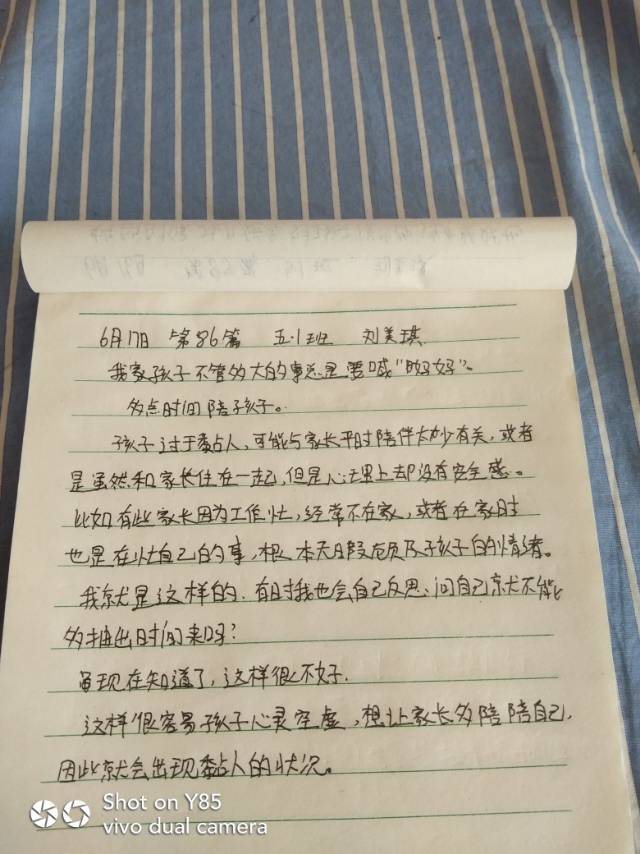 6月17日 第86篇 五.1班 刘美琪
我家孩子不管多大的事总是要喊"妈妈"。
多点时间陪孩子。
孩子过于黏人,可能与家长平时陪伴太少有关,或者
是虽然和家长住在一起,但是心里上却没有安全感。
比如有些家长因为工作忙,经常不在家,或者在家时
也是在忙自己的事,根本无暇顾及孩子的情绪。
我就是这样的.有时我也会自己反思、问自己就不能
多抽出时间来吗?
现在知道了,这样很不好.
这样很容易孩子心灵空虚,想让家长多陪陪自己,
因此就会出现黏人的状况。
Shot on Y85
vivo dual camera